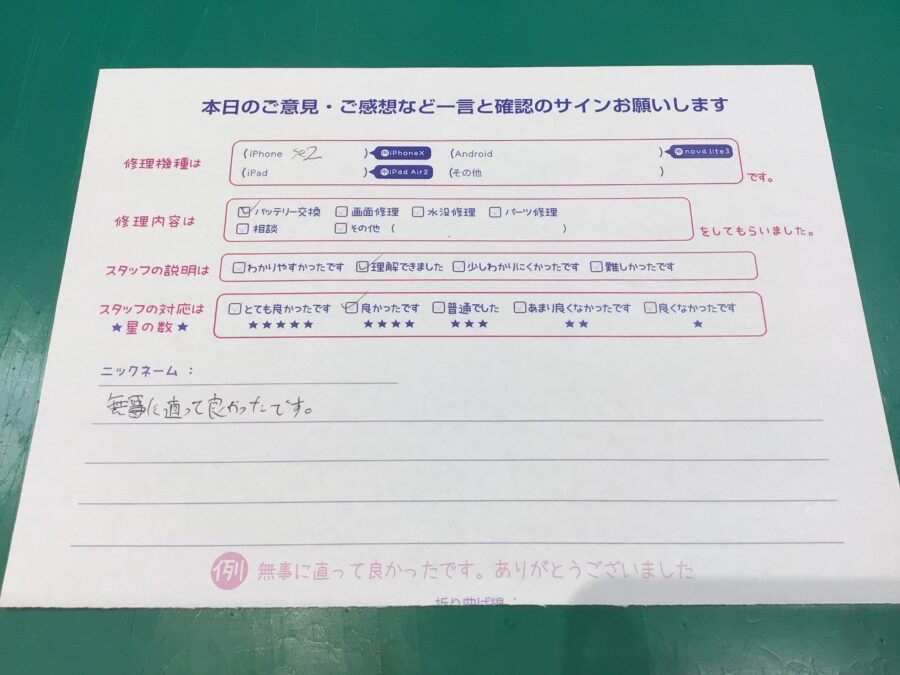 本日のご意見・ご感想など一言と確認のサインお願いします
修理機種は
(iPhone se2 ) 例iPhoneX (Android ) 例nova lite3
(iPad ) 例iPad Air2 (その他 )
です。
修理内容は
バッテリー交換 画面修理 水没修理 パーツ修理
相談 その他 ( )
をしてもらいました。
スタッフの説明は
わかりやすかったです 理解できました 少しわかりにくかったです 難しかったです
スタッフの対応は
★星の数★
とても良かったです 良かったです 普通でした あまり良くなかったです 良くなかったです
★★★★★ ★★★★ ★★★ ★★ ★
ニックネーム：
無事に直って良かったです。
例 無事に直って良かったです。ありがとうございました
折り曲げ線